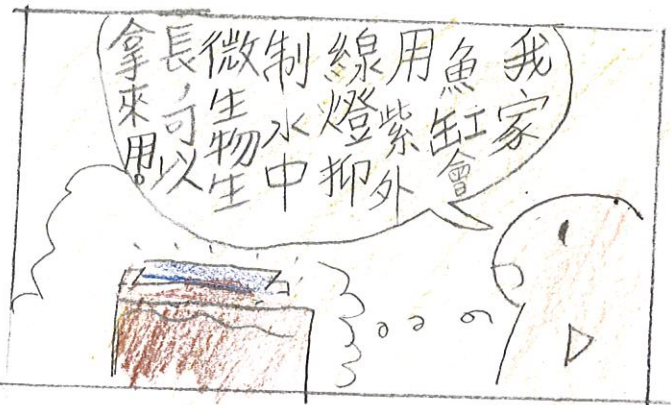 我家
魚缸會
用紫外
線燈抑
制水中
微生物生
長，可以
拿來用。